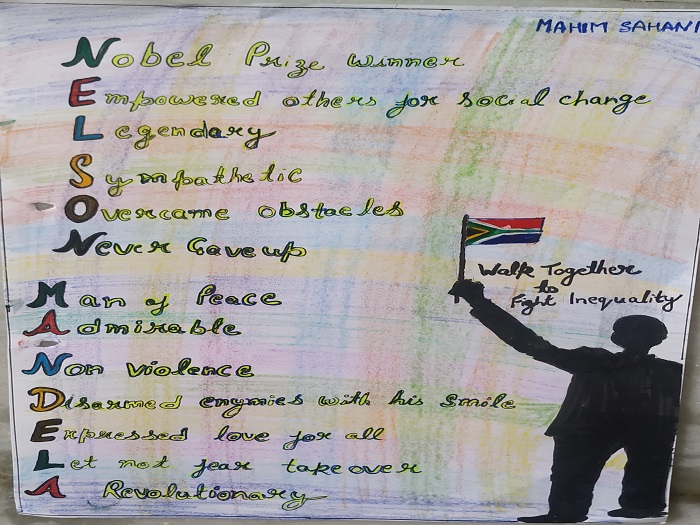 MAHIM SAHANI
Nobel Prize winner
Empowered others for social change
Legendary
Sympathetic
Overcame obstacles
Never Gave up
Man of Peace
Admirable
Non violence
Disarmed enymies with his Smile
Expressed love for all
Let not fear take over
A Revolutionary
Walk Together
to
Fight Inequality